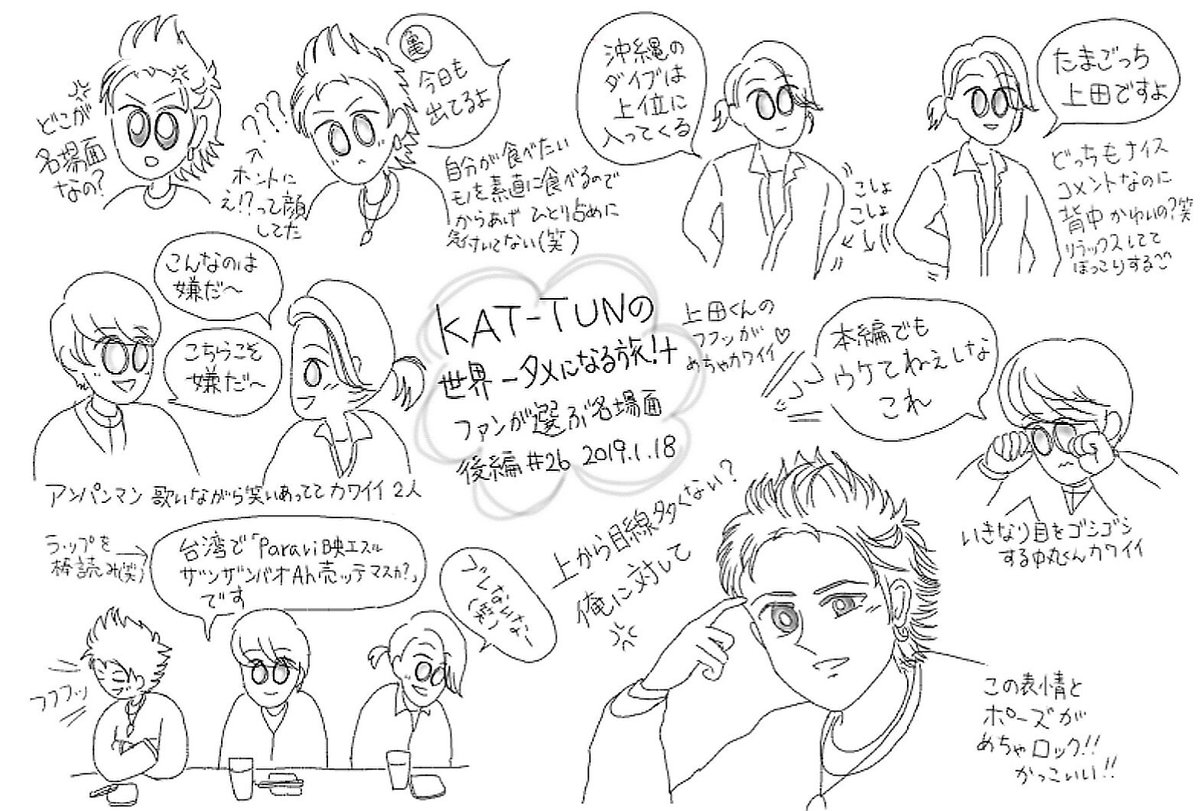 どこが
名場面
なの?
ク???
ホントに
え!?って顔
してた
亀
今日も
出てるよ
自分が食べたい
モノを素直に食べるので
からあげ ひとり占めに
気付いてない(笑)
沖縄の
ダイブは
上位に
入ってくる
こしょ
こしょ
たまごっち
上田ですよ
どっちもナイス
コメントなのに
背中 かゆいの?笑
リラックスしてて
ほっこりする
こんなのは
嫌だ~
こちらこそ
嫌だ~
アンパンマン 歌いながら笑いあってて カワイイ 2人
KAT-TUNの
世界一タメになる旅!+
ファンが選ぶ名場面
後編 #26 2019.1.18
上田くんの
フフンが
めちゃカワイイ♡
本編でも
ウケてねぇしな
これ
いきなり目をゴシゴシ
する中丸くんカワイイ
ラップを
棒読み(笑)
台湾で「Paravi映エスル
ザンザンバオAh売ッテマスカ?」
です
ブレないな~
(笑)
フフフッ
上から目線多くない?
俺に対して
この表情と
ポーズが
めちゃロック!!
かっこいい!!